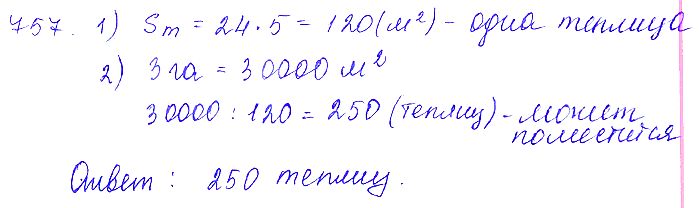 757. 1) Sт = 24 · 5 = 120 (м²) - одна теплица
2) 3 га = 30000 м²
30000 : 120 = 250 (теплиц) - может
поместится
Ответ : 250 теплиц.